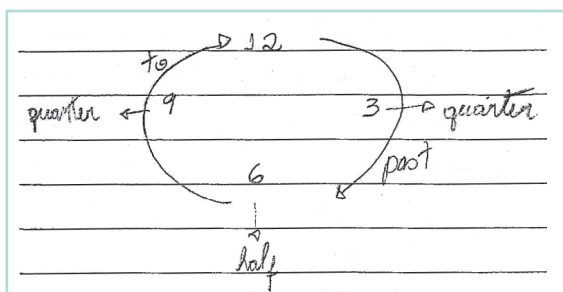 12
to
quarter 9 3 quarter
past
6
half